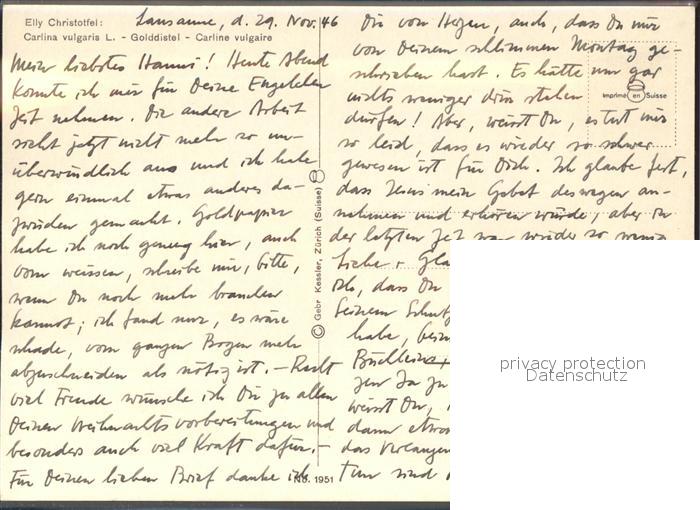 Elly Christoffel:
Carlina vulgaris L. - Golddistel - Carline vulgaire
Lausanne, d. 29. Nov. 46
Mein liebstes Hanni! Heute Abend
konnte ich mir für Deine Engelchen
Zeit nehmen. Die andere Arbeit
sieht jetzt nicht mehr so un-
überwindlich aus und ich habe
gern einmal etwas anderes da-
zwischen gemacht. Goldpapier
habe ich noch genug hier, auch
vom weissen, schreibe mir, bitte,
wenn Du noch mehr brauchen
kannst; ich fand nur, es wäre
schade, vom ganzen Bogen mehr
abzuschneiden als nötig ist. – Recht
viel Freude wünsche ich Dir zu allen
Deinen Weihnachtsvorbereitungen und
besonders auch viel Kraft dafür. –
Für Deinen lieben Brief danke ich
No. 1951
© Gebr. Kessler, Zürich (Suisse)
Imprimé en Suisse
Dir von Herzen, auch, dass Du mir
von Deinem schlimmen Montag ge-
schrieben hast. Es hätte mir gar
nichts weniger drin stehen
dürfen! Aber, weisst Du, es tut mir
so leid, dass es wieder so schwer
gewesen ist für Dich. Ich glaube fest,
dass Jesus mein Gebet deswegen an-
nehmen und erhören würde, aber in
der letzten Zeit war wieder so wenig
Liebe + Gla
ich, dass Du
Seinem Schutz
habe, beim
Büchleins +
zen Ja zu
weisst Du,
dann etwas
das Verlangen
Tun sind
privacy protection
Datenschutz